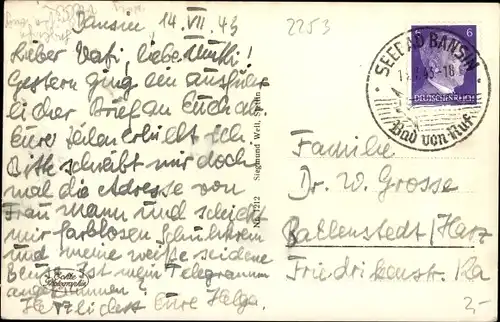 Bansin, 14.VII.43
2253
Lieber Vati, liebe Mutti!
Gestern ging ein ausführ
licher Brief an Euch ab
Eure Zeilen erhielt ich
Bitte schreibt mir doch
mal die Adresse von
Frau Mann und schickt
mir farblosen
und meine weiße seidene
Ist mein Telegramm
angekommen?
Herzlichst Eure Helga.
Echte
Photographie
Nr. 1212 Siegmund Weil, Stettin
6 6
DEUTSCHES REICH
SEEBAD BANSIN
.7.43-18
Bad von Ruf
Familie
Dr. W. Grosse
Ballenstedt/Harz
Friedrikenstr.
2,-